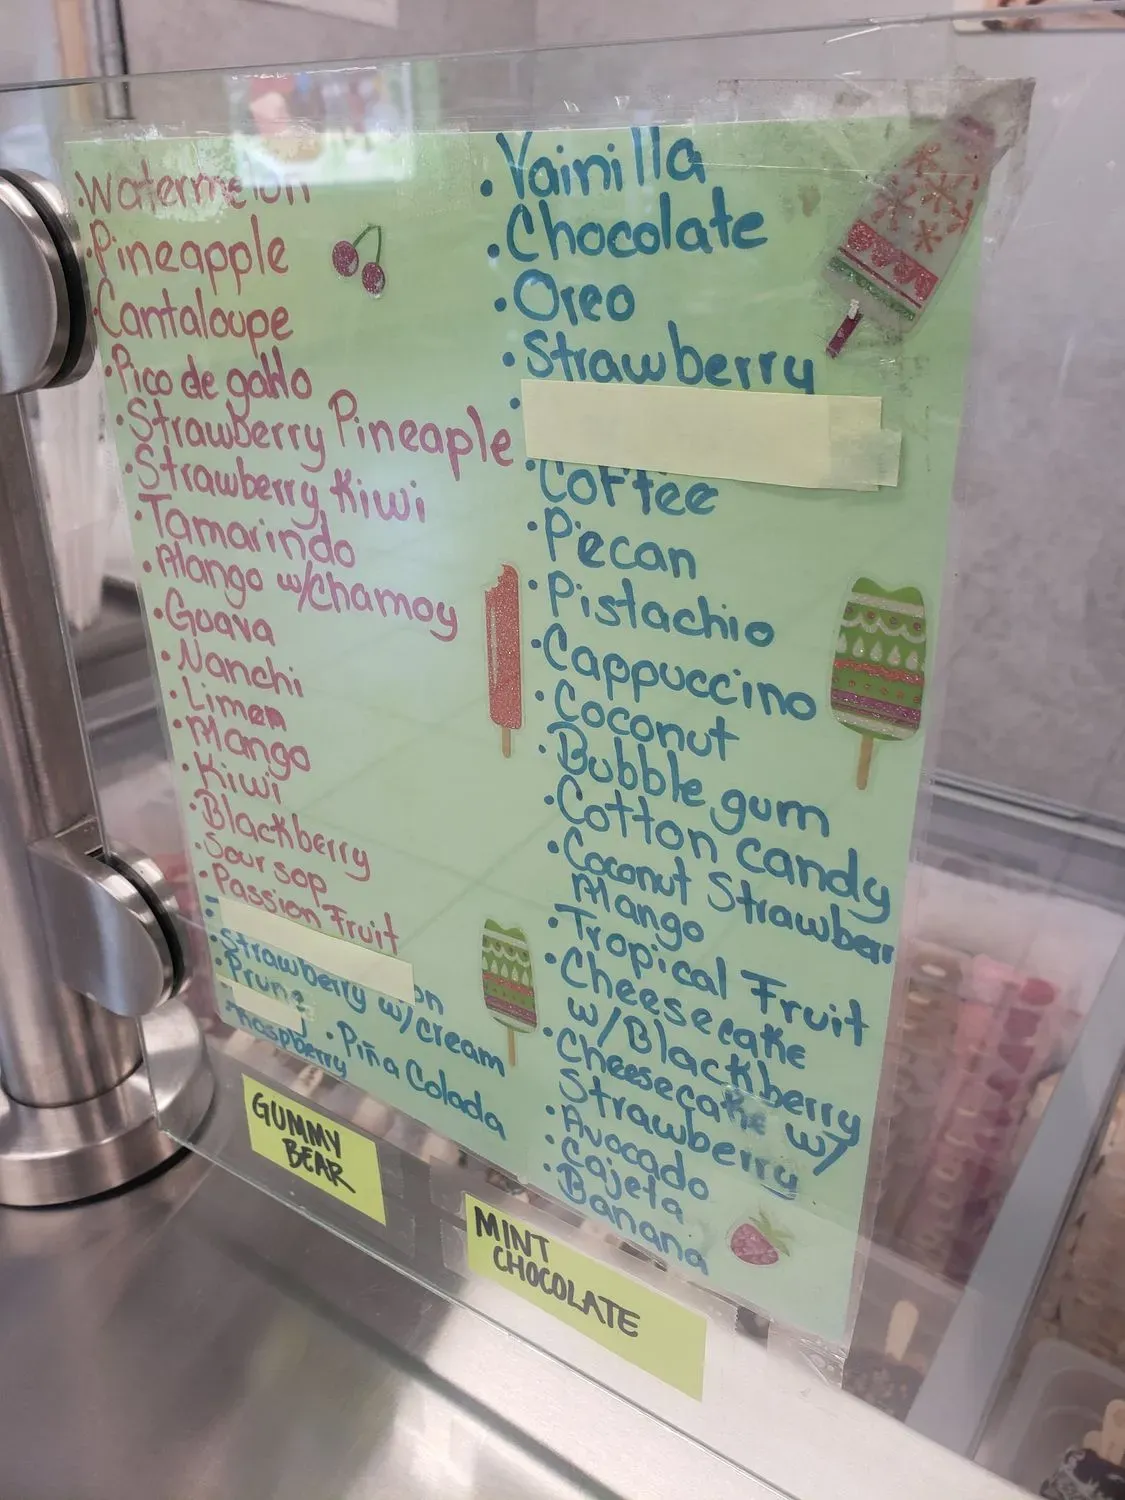 · Watermelon
· Pineapple
· Cantaloupe
· Pico de gallo
· Strawberry Pineaple
· Strawberry Kiwi
· Tamarindo
· Mango w/Chamoy
· Guava
· Nanchi
· Limon
· Mango
· Kiwi
· Blackberry
· Sour sop
· Passion Fruit
· Strawberry w/cream
· Prune
· Raspberry
· Piña Colada
· Vainilla
· Chocolate
· Oreo
· Strawberry
· Coffee
· Pecan
· Pistachio
· Cappuccino
· Coconut
· Bubble gum
· Cotton candy
· Coconut Strawberr
Mango
· Tropical Fruit
· Cheesecake
w/Blackberry
· Cheesecake w/
Strawberry
· Avocado
· Cajeta
· Banana
GUMMY
BEAR
MINT
CHOCOLATE